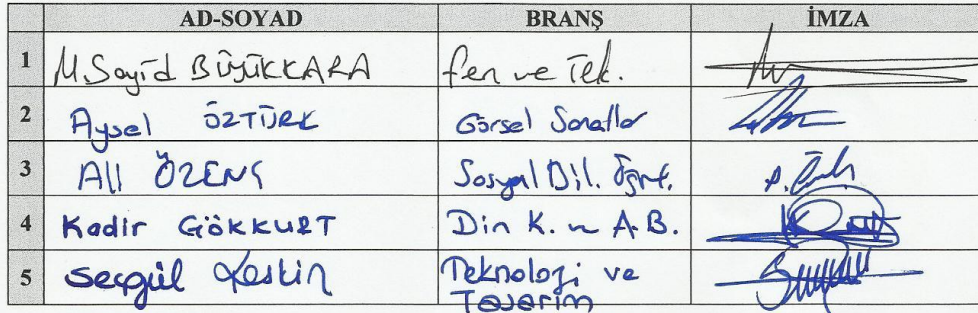 AD-SOYAD BRANŞ İMZA
1 M.Sayid BÜYÜKKARA fen ve Tek.
2 Aysel ÖZTÜRK Görsel Sanatlar
3 Ali ÖZENÇ Sosyal Bil. Öğret.
4 Kadir GÖKKURT Din K. ve A.B.
5 Keskin Teknoloji ve
Tasarım